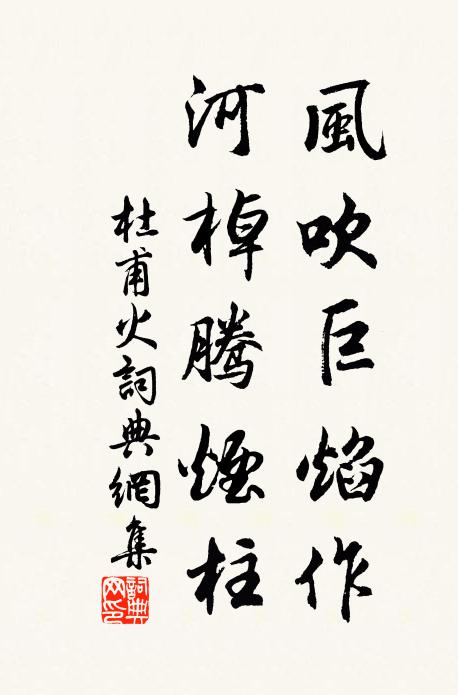 風吹巨焰作
河棹騰煙柱
杜甫火詞典網集
詞典網印